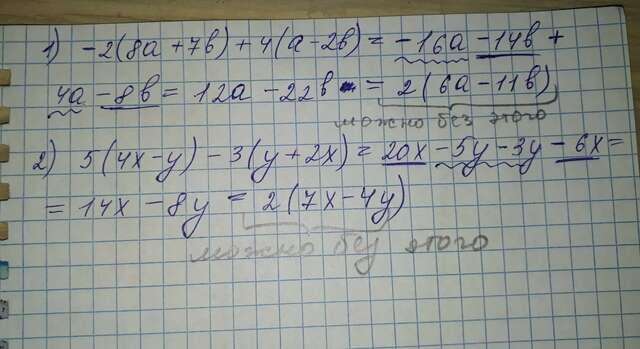 1) -2(8a+7b)+4(a-2b)= -16a -14b +
4a -8b = 12a -22b = 2(6a-11b)
можно без этого
2) 5(4x-y)-3(y+2x)= 20x -5y -3y -6x=
= 14x -8y = 2(7x-4y)
можно без этого